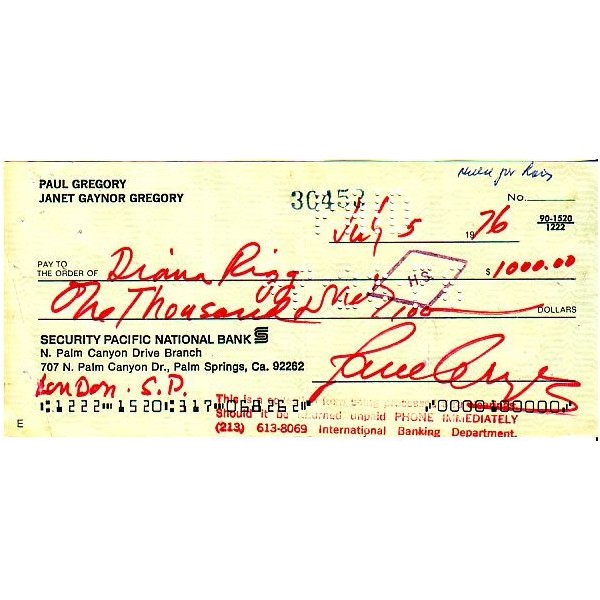 PAUL GREGORY
JANET GAYNOR GREGORY
30453
No.
July 5 1976
90-1520
1222
PAY TO
THE ORDER OF Diana Rigg $1000.00
One Thousand & No/100 DOLLARS
H.S.
SECURITY PACIFIC NATIONAL BANK
N. Palm Canyon Drive Branch
707 N. Palm Canyon Dr., Palm Springs, Ca. 92262
LonDon. S.P.
This is a being processed
Should it be returned unpaid PHONE IMMEDIATELY
(213) 613-8069 International Banking Department.
E